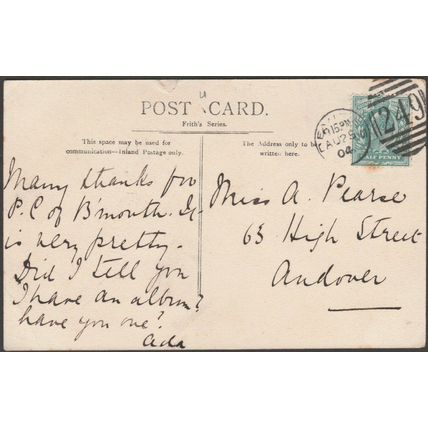 POST CARD.
Frith's Series.
This space may be used for
communication—Inland Postage only.
The Address only to be
written here.
249
AU 25
04
HALFPENNY
Many thanks for
P.C of B'mouth. It
is very pretty.
Did I tell you
I have an album?
have you one?
Ada
Miss A. Pearse
63 High Street
Andover